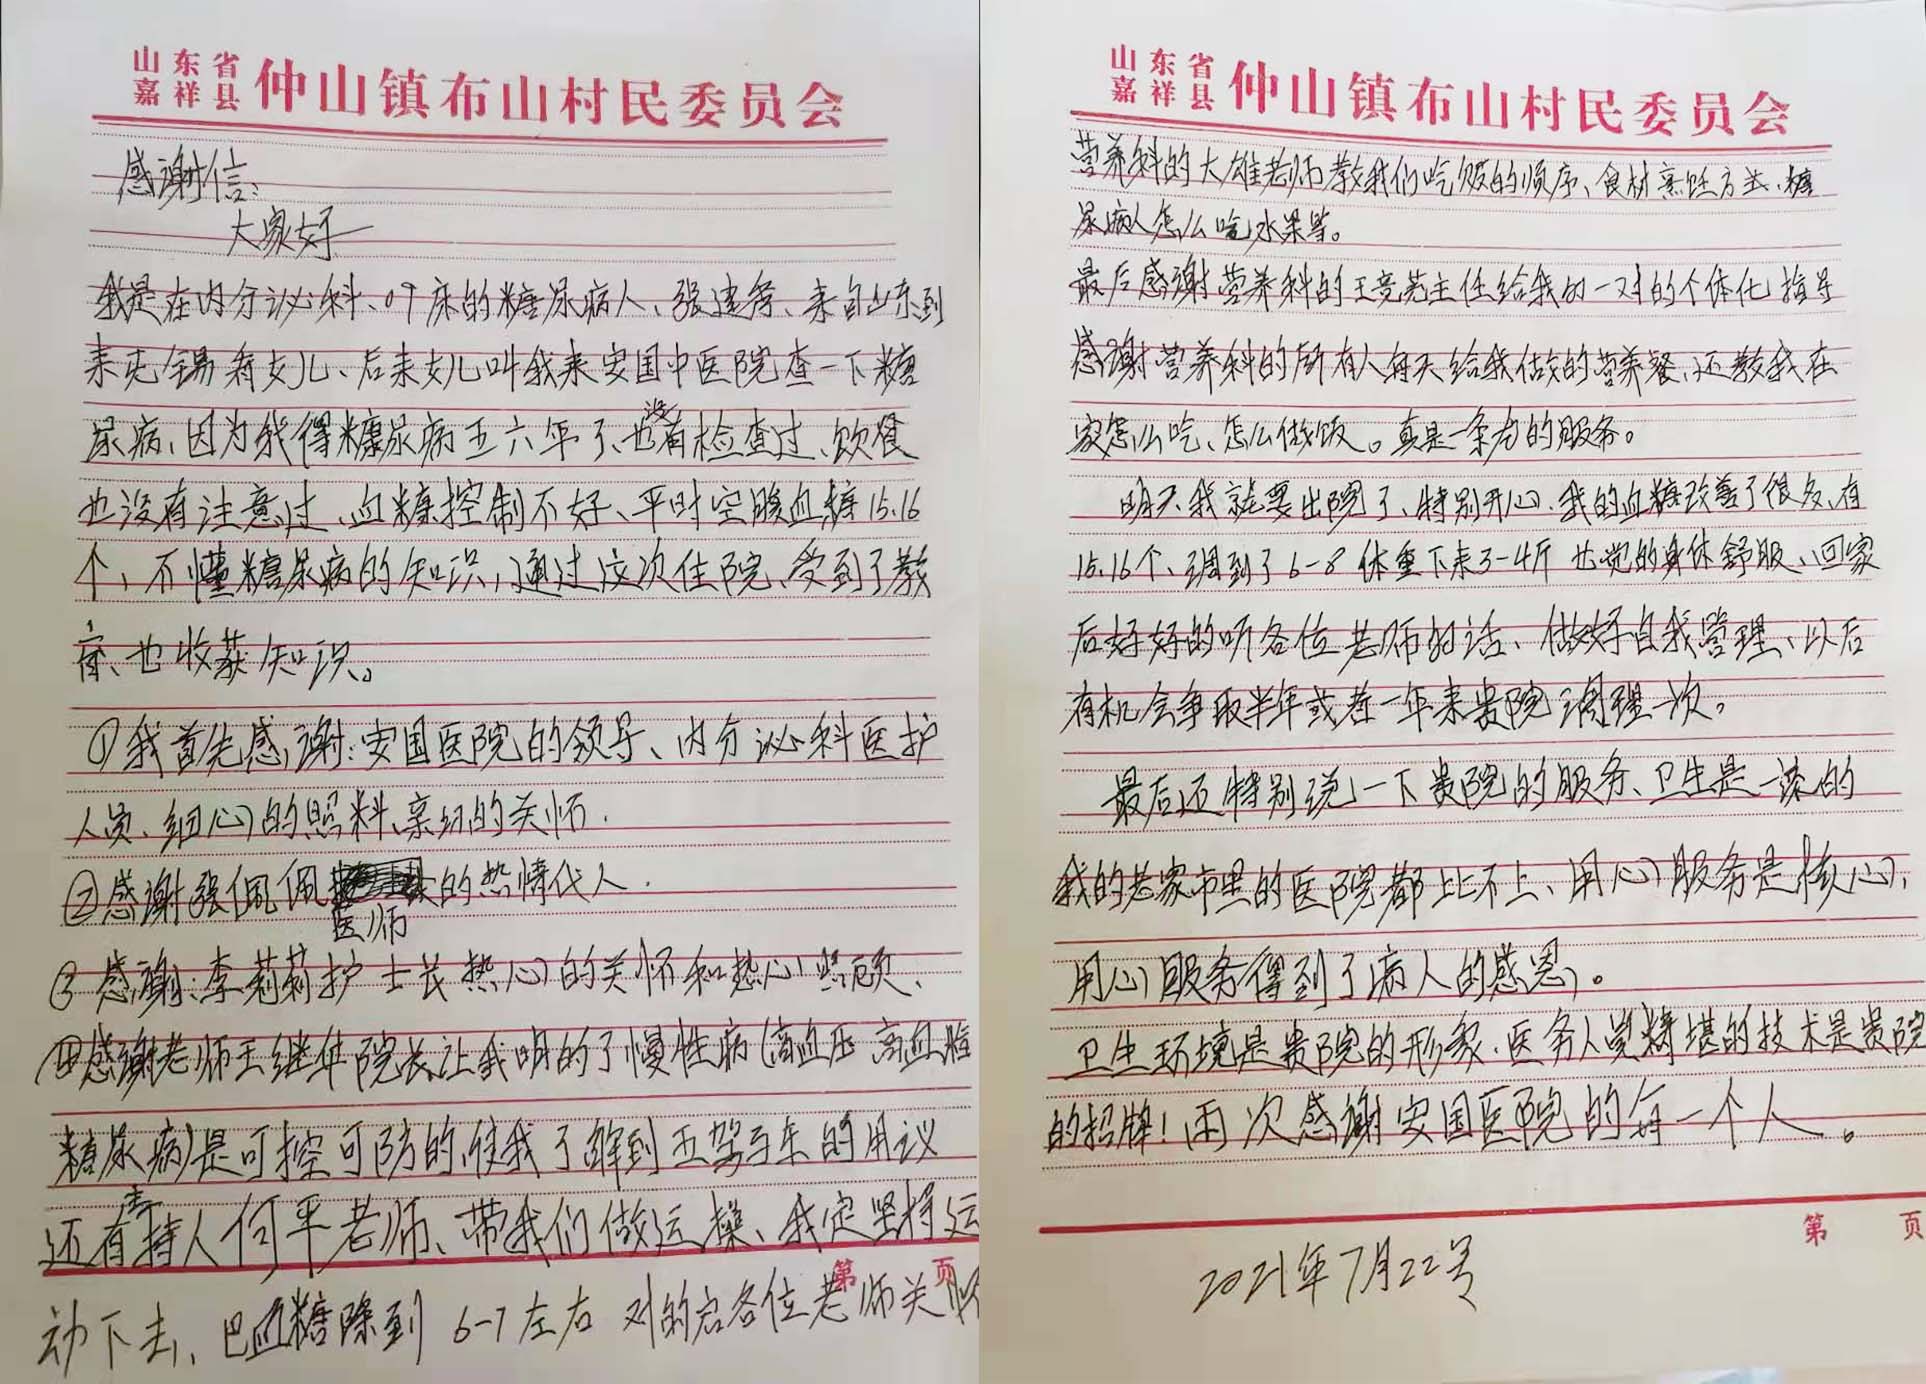 山东省
嘉祥县
仲山镇布山村民委员会
感谢信:
大家好
我是在内分泌科、09床的糖尿病人、张建、来自山东到
来无锡看女儿、后来女儿叫我来安国中医院查一下糖
尿病、因为我得糖尿病五六年了、也没有检查过、饮食
也没有注意过、血糖控制不好、平时空腹血糖15.16
个、不懂糖尿病的知识,通过这次住院、受到了教
育、也收获知识。
①我首先感谢:安国医院的领导、内分泌科医护
人员、细心的照料、亲切的关怀.
②感谢张佩佩医师的热情代人.
③感谢:李莉莉护士长热心的关怀和热心照顾、
④感谢老师王继华院长让我明的了慢性病(高血压 高血脂
糖尿病)是可控可防的,使我了解到五驾马车的用议
还有主持人何平老师、带我们做运操、我定坚持运
动下去、巴血糖降到6-7左右 对的启各位老师关怀
第 页
山东省
嘉祥县
仲山镇布山村民委员会
营养科的大雄老师教我们吃饭的顺序、食材烹饪方法、糖
尿病人怎么吃水果等。
最后感谢营养科的王竞芜主任给我的一对的个体化指导
感谢营养科的所有人每天给我做的营养餐、还教我在
家怎么吃、怎么做饭。真是一条龙的服务。
明天我就要出院了、特别开心.我的血糖改善了很多、有
15.16个、调到了6-8 体重下来3-4斤 也觉的身体舒服、回家
后好好的听各位老师的话、做好自我管理、以后
有机会争取半年或者一年来贵院调理一次。
最后还特别说一下贵院的服务、卫生是一流的
我的老家市里的医院都比不上、用心服务是核心,
用心服务得到了病人的感恩。
卫生环境是贵院的形象.医务人员精堪的技术是贵院
的招牌!再次感谢安国医院的每一个人。
第 页
2021年7月22号